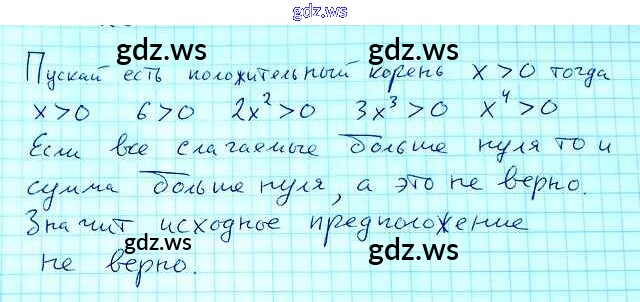 gdz.ws
gdz.ws gdz.ws
Пускай есть положительный корень x>0 тогда
x>0 6>0 2x²>0 3x³>0 x⁴>0
Если все слагаемые больше нуля то и
сумма больше нуля, а это не верно.
Значит исходное предположение
не верно.
gdz.ws gdz.ws
gdz.ws
gdz.ws gdz.ws